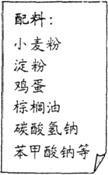 配料：
小麦粉
淀粉
鸡蛋
棕榈油
碳酸氢钠
苯甲酸钠等